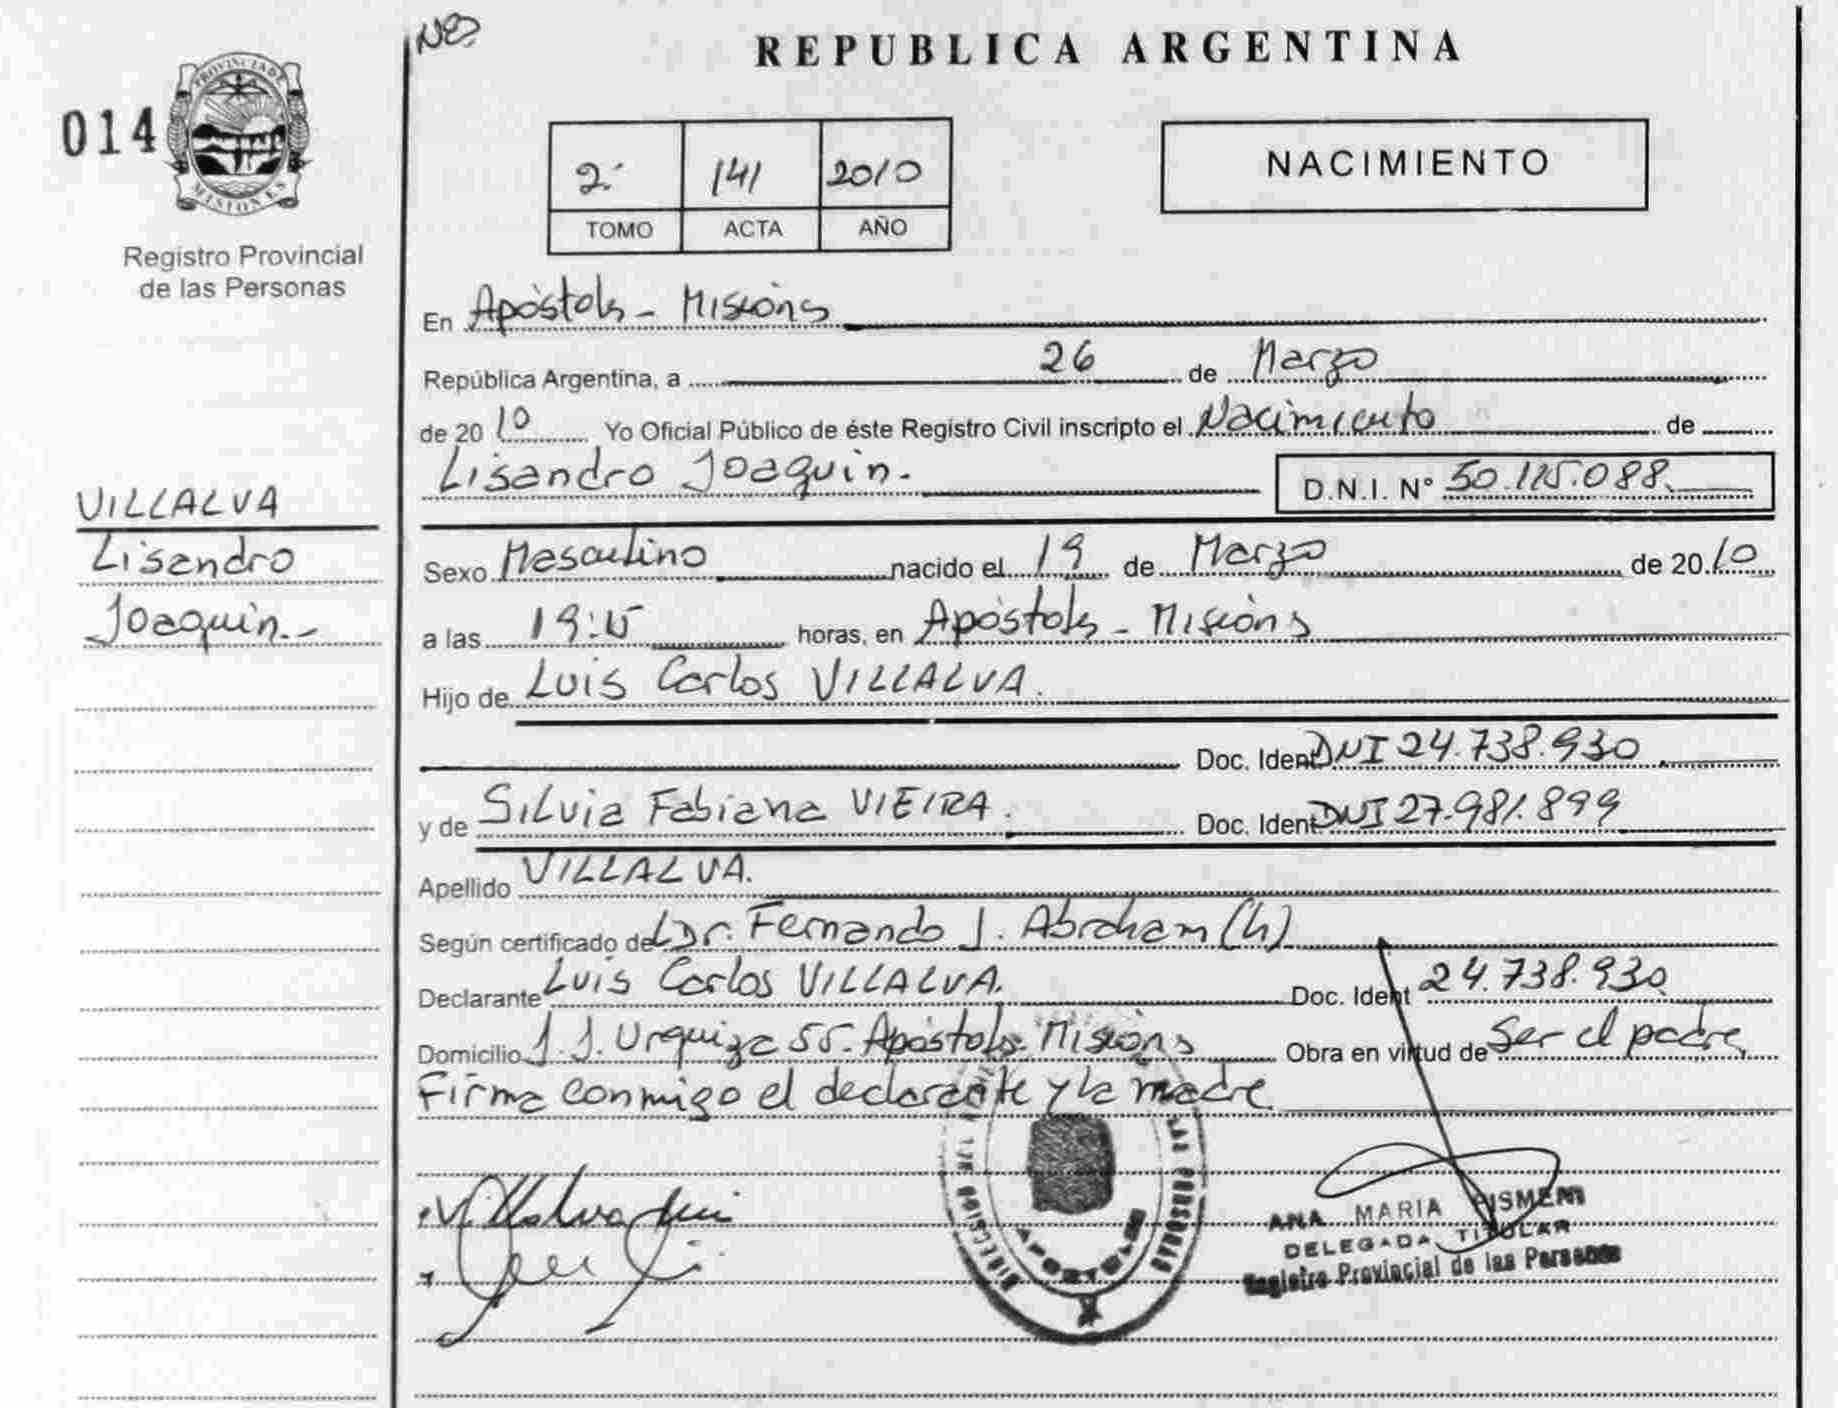 REPUBLICA ARGENTINA
014
PROVINCIA DE
MISIONES
Registro Provincial
de las Personas
2º 141 2010
TOMO ACTA AÑO
NACIMIENTO
En Apóstoles - Misiones
República Argentina, a 26 de Marzo
de 20 10 Yo Oficial Público de éste Registro Civil inscripto el Nacimiento de
Lisandro Joaquin. D.N.I. N° 50.115.088.
VILLALVA
Lisandro
Joaquin.-
Sexo Masculino nacido el 19 de Marzo de 20 10
a las 19:15 horas, en Apóstoles - Misiones
Hijo de Luis Carlos VILLALVA.
Doc. Ident DNI 24.738.930
y de Silvia Fabiana VIEIRA. Doc. Ident DNI 27.981.899
Apellido VILLALVA.
Según certificado de Dr. Fernando J. Abraham (h)
Declarante Luis Carlos VILLALVA. Doc. Ident 24.738.930
Domicilio J.J. Urquiza 55. Apóstoles Misiones Obra en virtud de Ser el padre,
Firma conmigo el declarante y la madre.
LAS PERSONAS
DIRECCION
APOSTOLES
ANA MARIA
DELEGADA TITULAR
Registro Provincial de las Personas